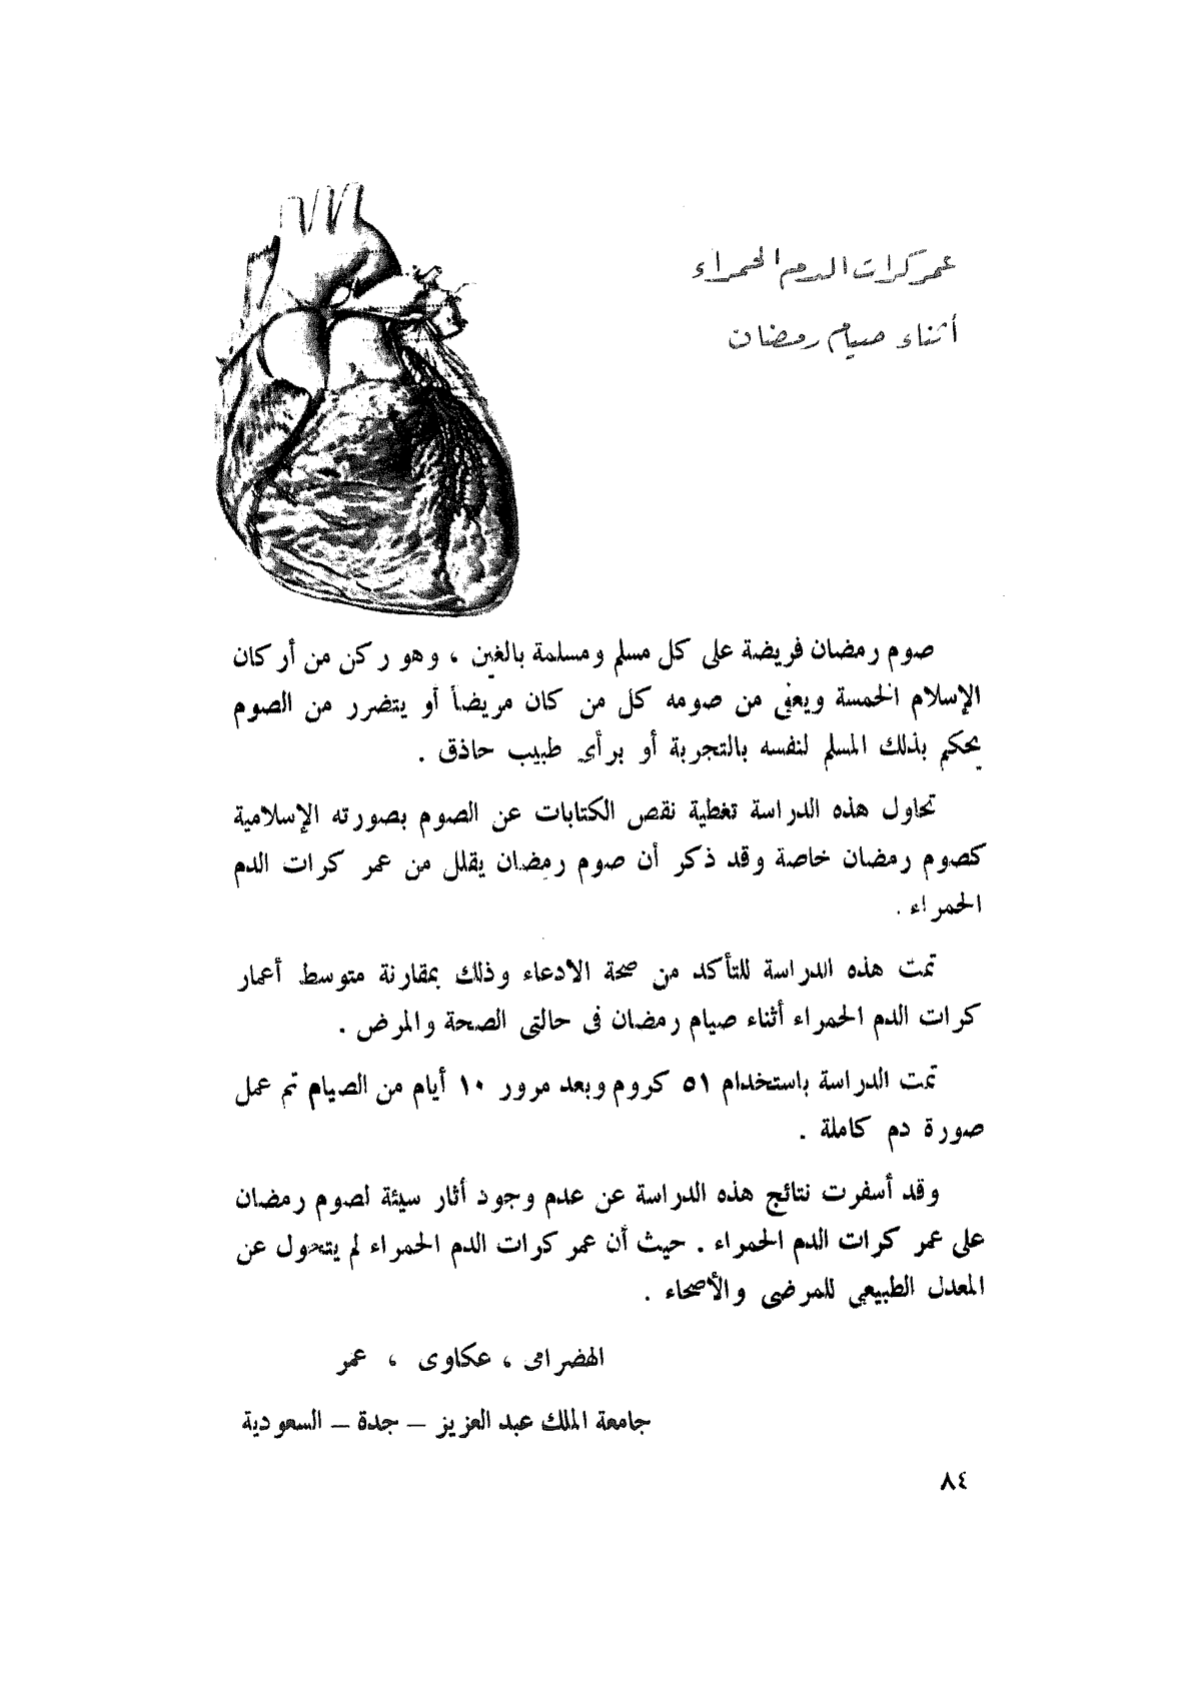 عمر كرات الدم الحمراء
أثناء صيام رمضان
صوم رمضان فريضة على كل مسلم ومسلمة بالغين ، وهو ركن من أركان
الإسلام الخمسة ويعفى من صومه كل من كان مريضاً أو يتضرر من الصوم
يحكم بذلك المسلم لنفسه بالتجربة أو برأى طبيب حاذق .
تحاول هذه الدراسة تغطية نقص الكتابات عن الصوم بصورته الإسلامية
كصوم رمضان خاصة وقد ذكر أن صوم رمضان يقلل من عمر كرات الدم
الحمراء .
تمت هذه الدراسة للتأكد من صحة الادعاء وذلك بمقارنة متوسط أعمار
كرات الدم الحمراء أثناء صيام رمضان فى حالتى الصحة والمرض .
تمت الدراسة باستخدام ٥١ كروم وبعد مرور ١٠ أيام من الصيام تم عمل
صورة دم كاملة .
وقد أسفرت نتائج هذه الدراسة عن عدم وجود أثار سيئة لصوم رمضان
على عمر كرات الدم الحمراء . حيث أن عمر كرات الدم الحمراء لم يتحول عن
المعدل الطبيعى للمرضى والأصحاء .
الهضرامى ، عكاوى ، عمر
جامعة الملك عبد العزيز – جدة – السعودية
٨٤